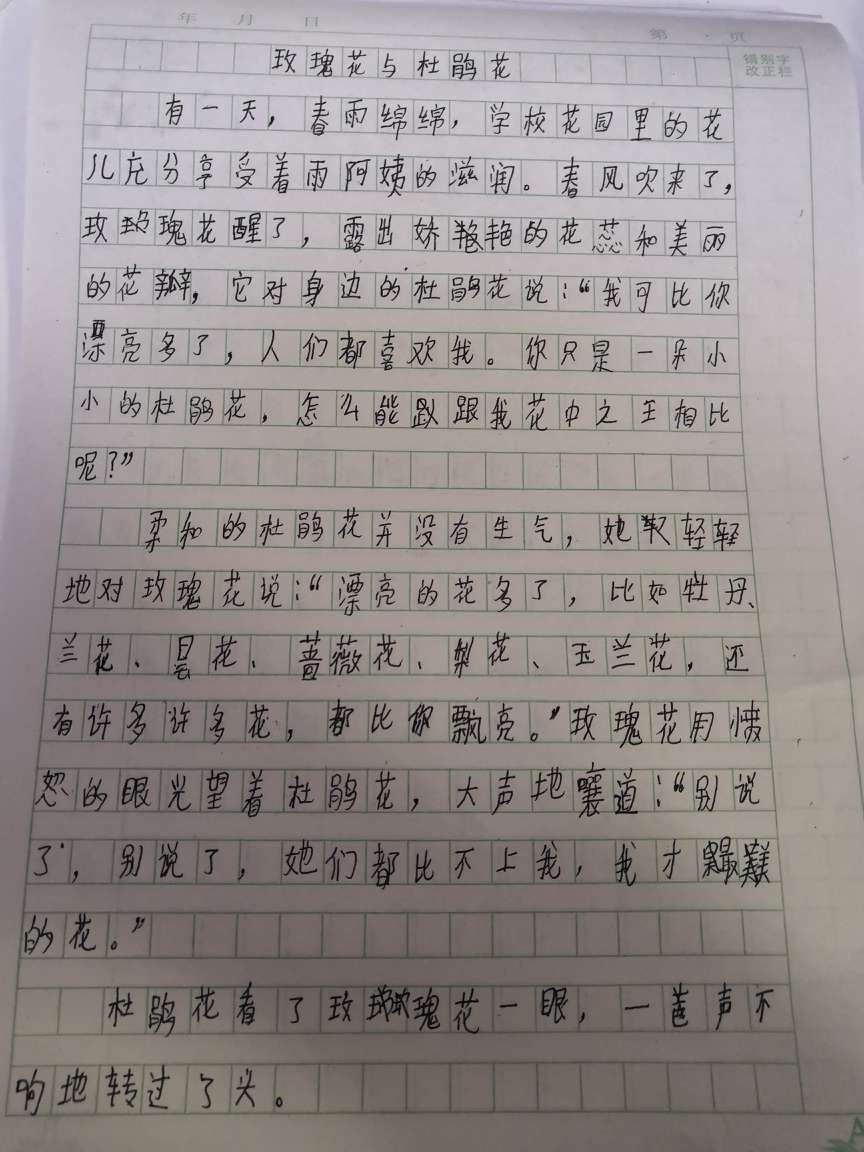 年 月 日 第 页
错别字
改正栏
玫瑰花与杜鹃花
有一天，春雨绵绵，学校花园里的花
儿充分享受着雨阿姨的滋润。春风吹来了，
玫瑰花醒了，露出娇艳的花蕊和美丽
的花瓣，它对身边的杜鹃花说：“我可比你
漂亮多了，人们都喜欢我。你只是一朵小
小的杜鹃花，怎么能跟我花中之王相比
呢？”
柔和的杜鹃花并没有生气，她轻轻
地对玫瑰花说：“漂亮的花多了，比如牡丹、
兰花、昙花、蔷薇花、梨花、玉兰花，还
有许多许多花，都比你飘亮。”玫瑰花用愤
怒的眼光望着杜鹃花，大声地嚷道：“别说
了，别说了，她们都比不上我，我才最美
的花。”
杜鹃花看了玫瑰花一眼，一声不
响地转过了头。